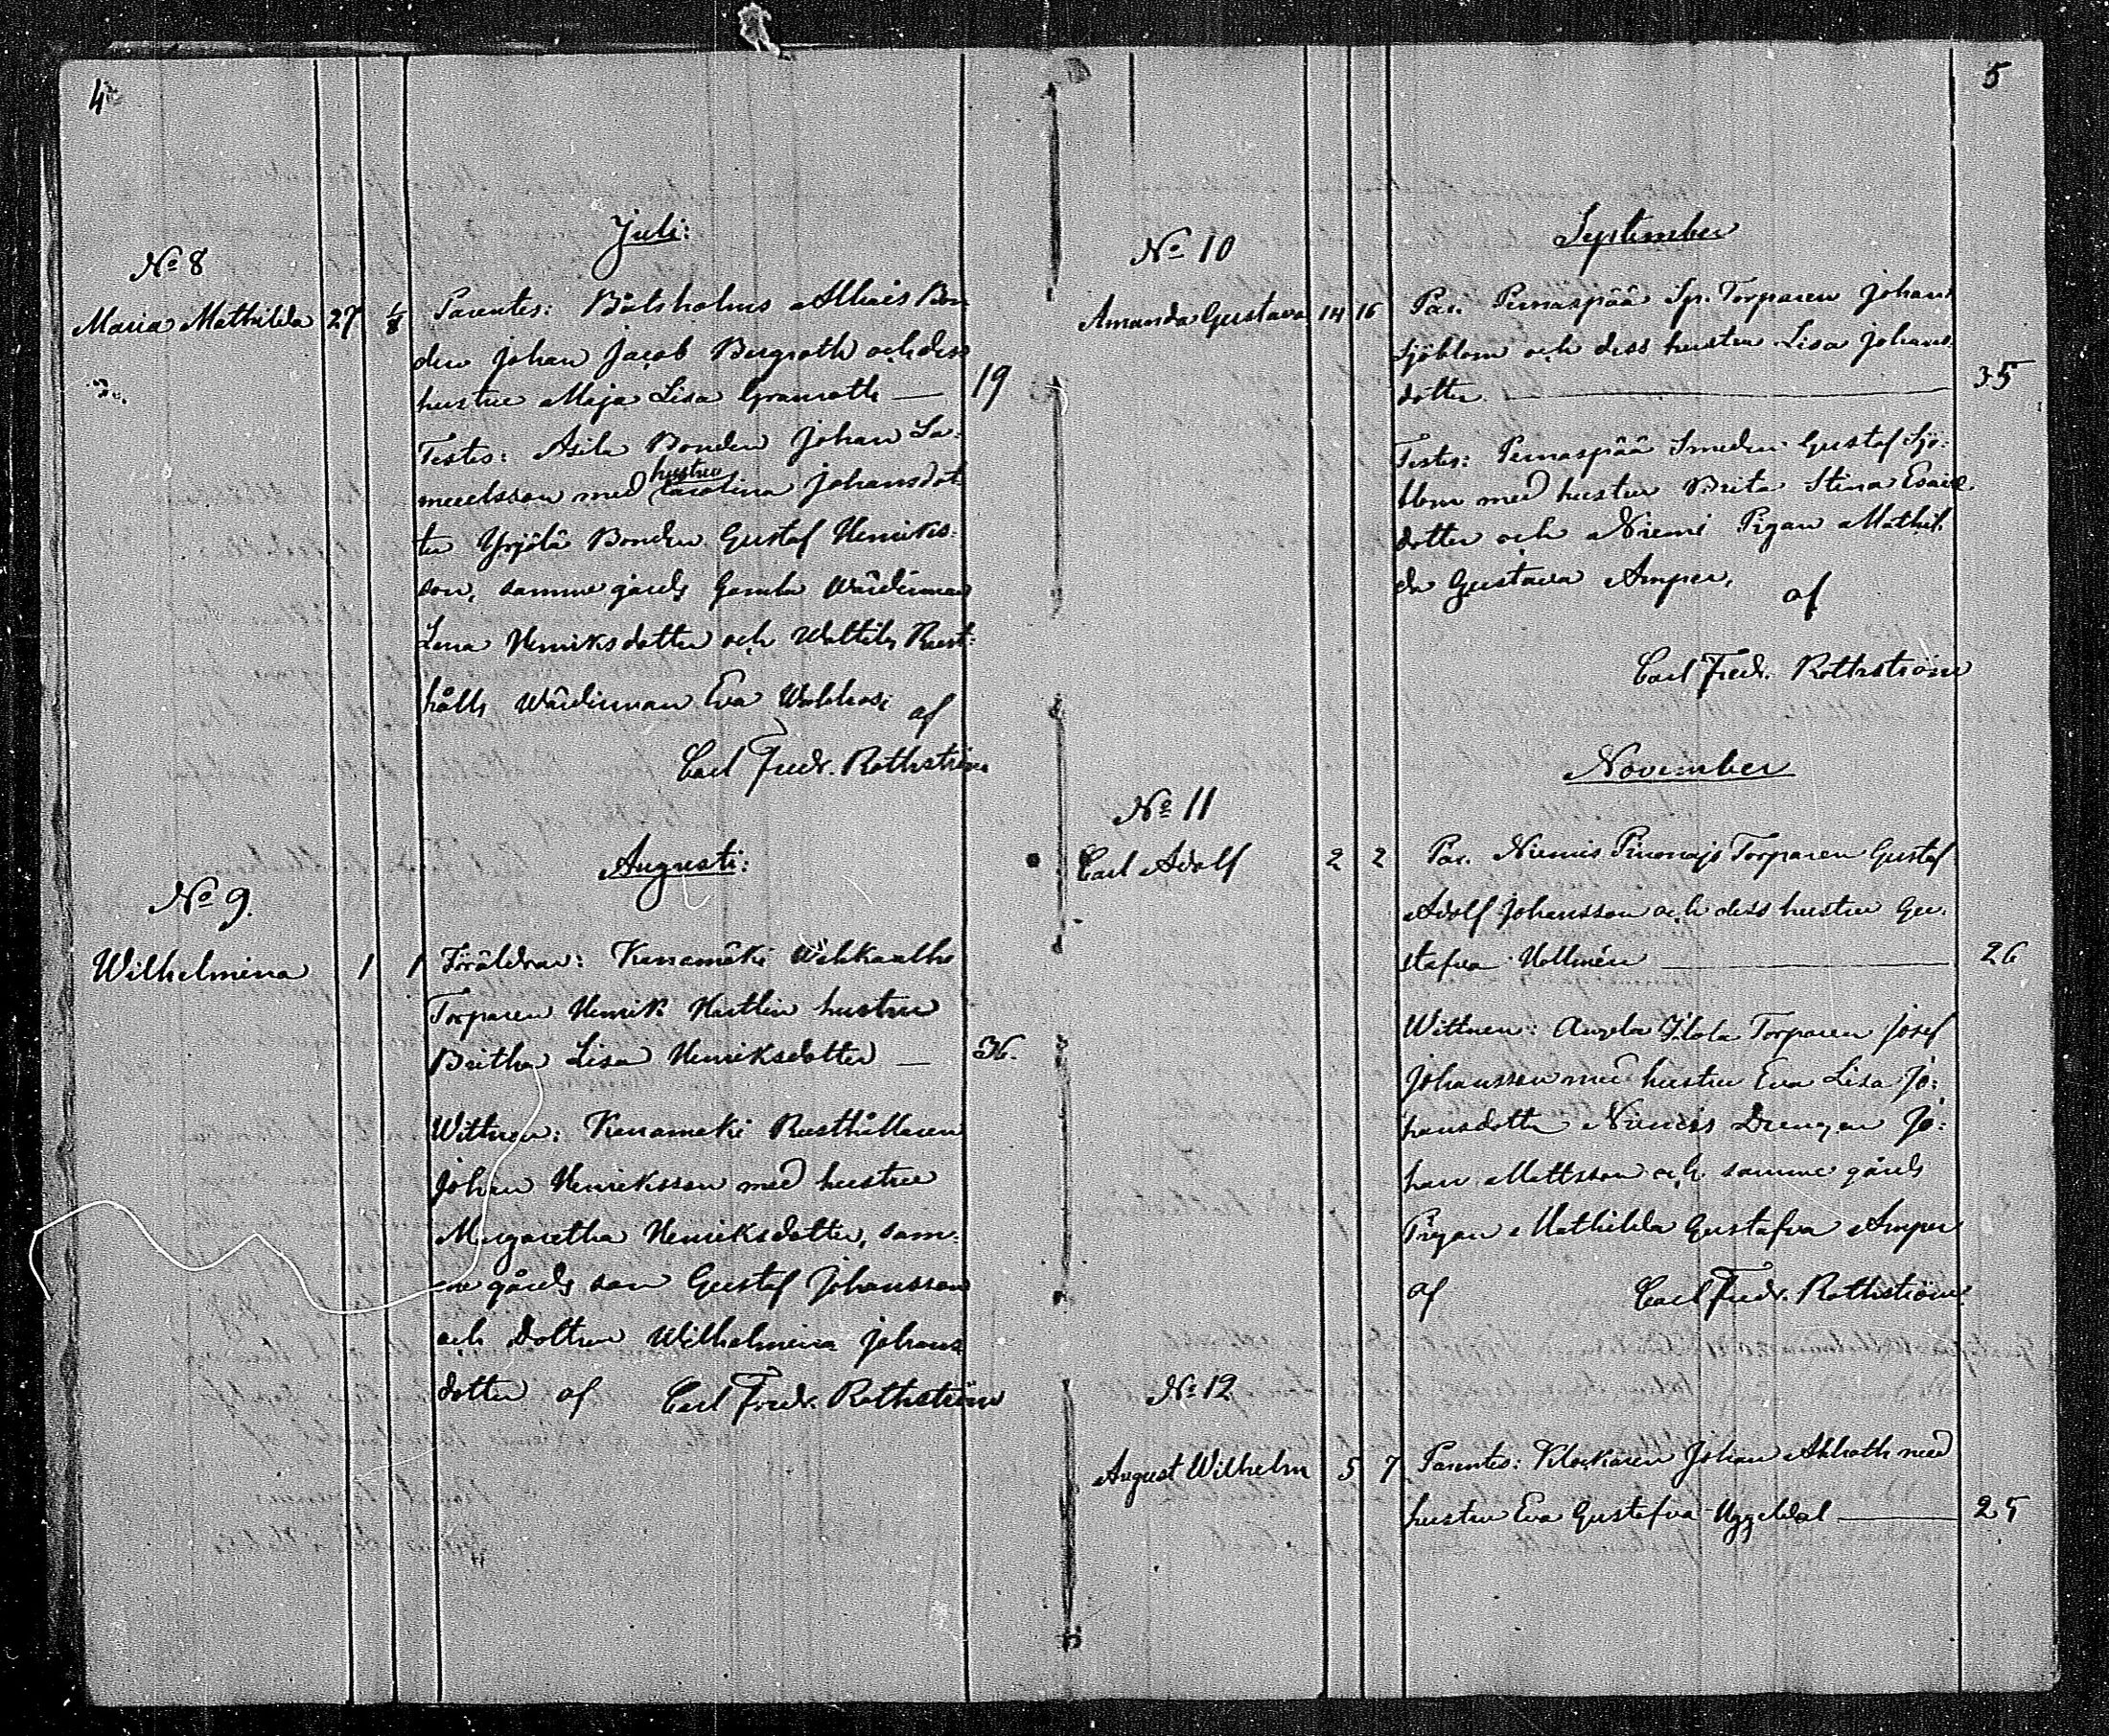 4
Juli:
No 8
Maria Mathilda 27 1/8 Parentes: Båtsholms Allhais Bon-
den Johan Jacob Bergroth och dess
hustru Maja Lisa Granroth — 19
Testes: Asila Bonden Johan Sa-
muelsson med hustru Carolina Johansdot-
ter Yrjölä Bonden Gustaf Henriks-
son, samme gårds Gamla Wärdinnan
Lena Henriksdotter och Waltila Rust-
hålls Wärdinnan Eva
af
Carl Fredr. Rothström
Augusti:
No 9.
Wilhelmina 1 1 Föräldrar: Kurramäki
Torparen Henrik Hartlin hustru
Britha Lisa Henriksdotter — 36.
Wittnen: Kurramäki Rusthållaren
Johan Henriksson med hustru
Margaretha Henriksdotter, sam-
me gårds son Gustaf Johansson
och Dottren Wilhelmina Johans
dotter af Carl Fredr. Rothström
5
September
No 10
Amanda Gustava 14 16 Par. Pernaspää Sp. Torparen Johan
Sjöblom och dess hustru Lisa Johans-
dotter — 35
Testes: Pernaspää Smeden Gustaf Sjö-
blom med hustru Brita Stina Esaie
dotter och Niemi Pigan Mathil-
da Gustava Amper,
af
Carl Fredr. Rothström
November
No 11
Carl Adolf 2 2 Par. Niemis Torparen Gustaf
Adolf Johansson och dess hustru Gu-
stafva Hollmén — 26
Wittnen: Anzela Ilola Torparen Josef
Johansson med hustru Eva Lisa Jo-
hansdotter Niemis Drengen Jo-
han Mattsson och samme gårds
Pigan Mathilda Gustafva Amper
af Carl Fredr. Rothström.
No 12
August Wilhelm 5 7 Parentes: Klockaren Johan Ahlroth med
hustru Eva Gustafva Uggeldal — 25